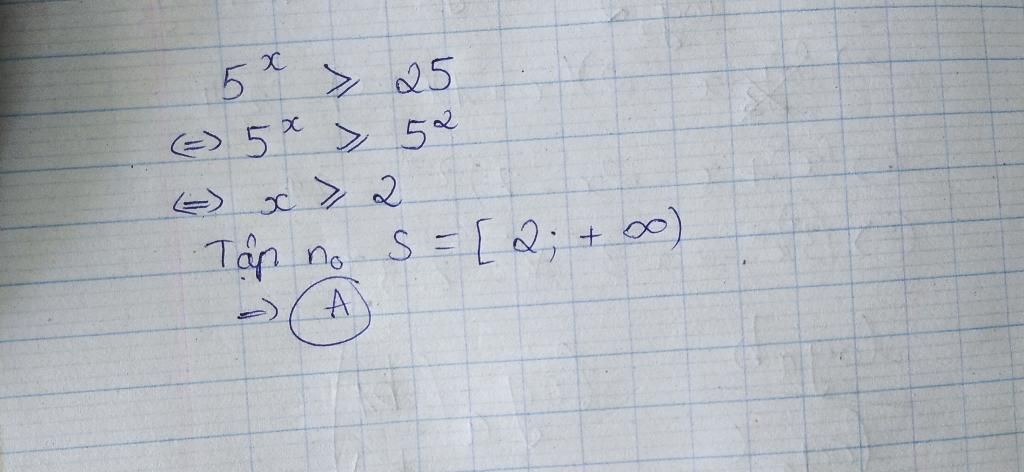 5^x ⩾ 25
⇔ 5^x ⩾ 5^2
⇔ x ⩾ 2
Tập n₀ S = [2; + ∞)
⇒ A